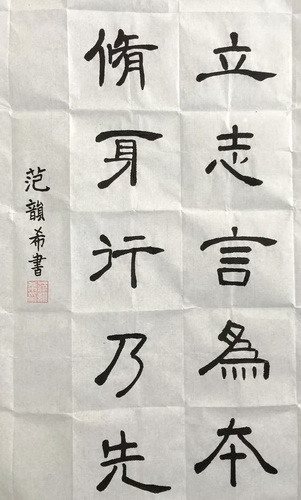 立志言為本
脩身行乃先
范韻希書